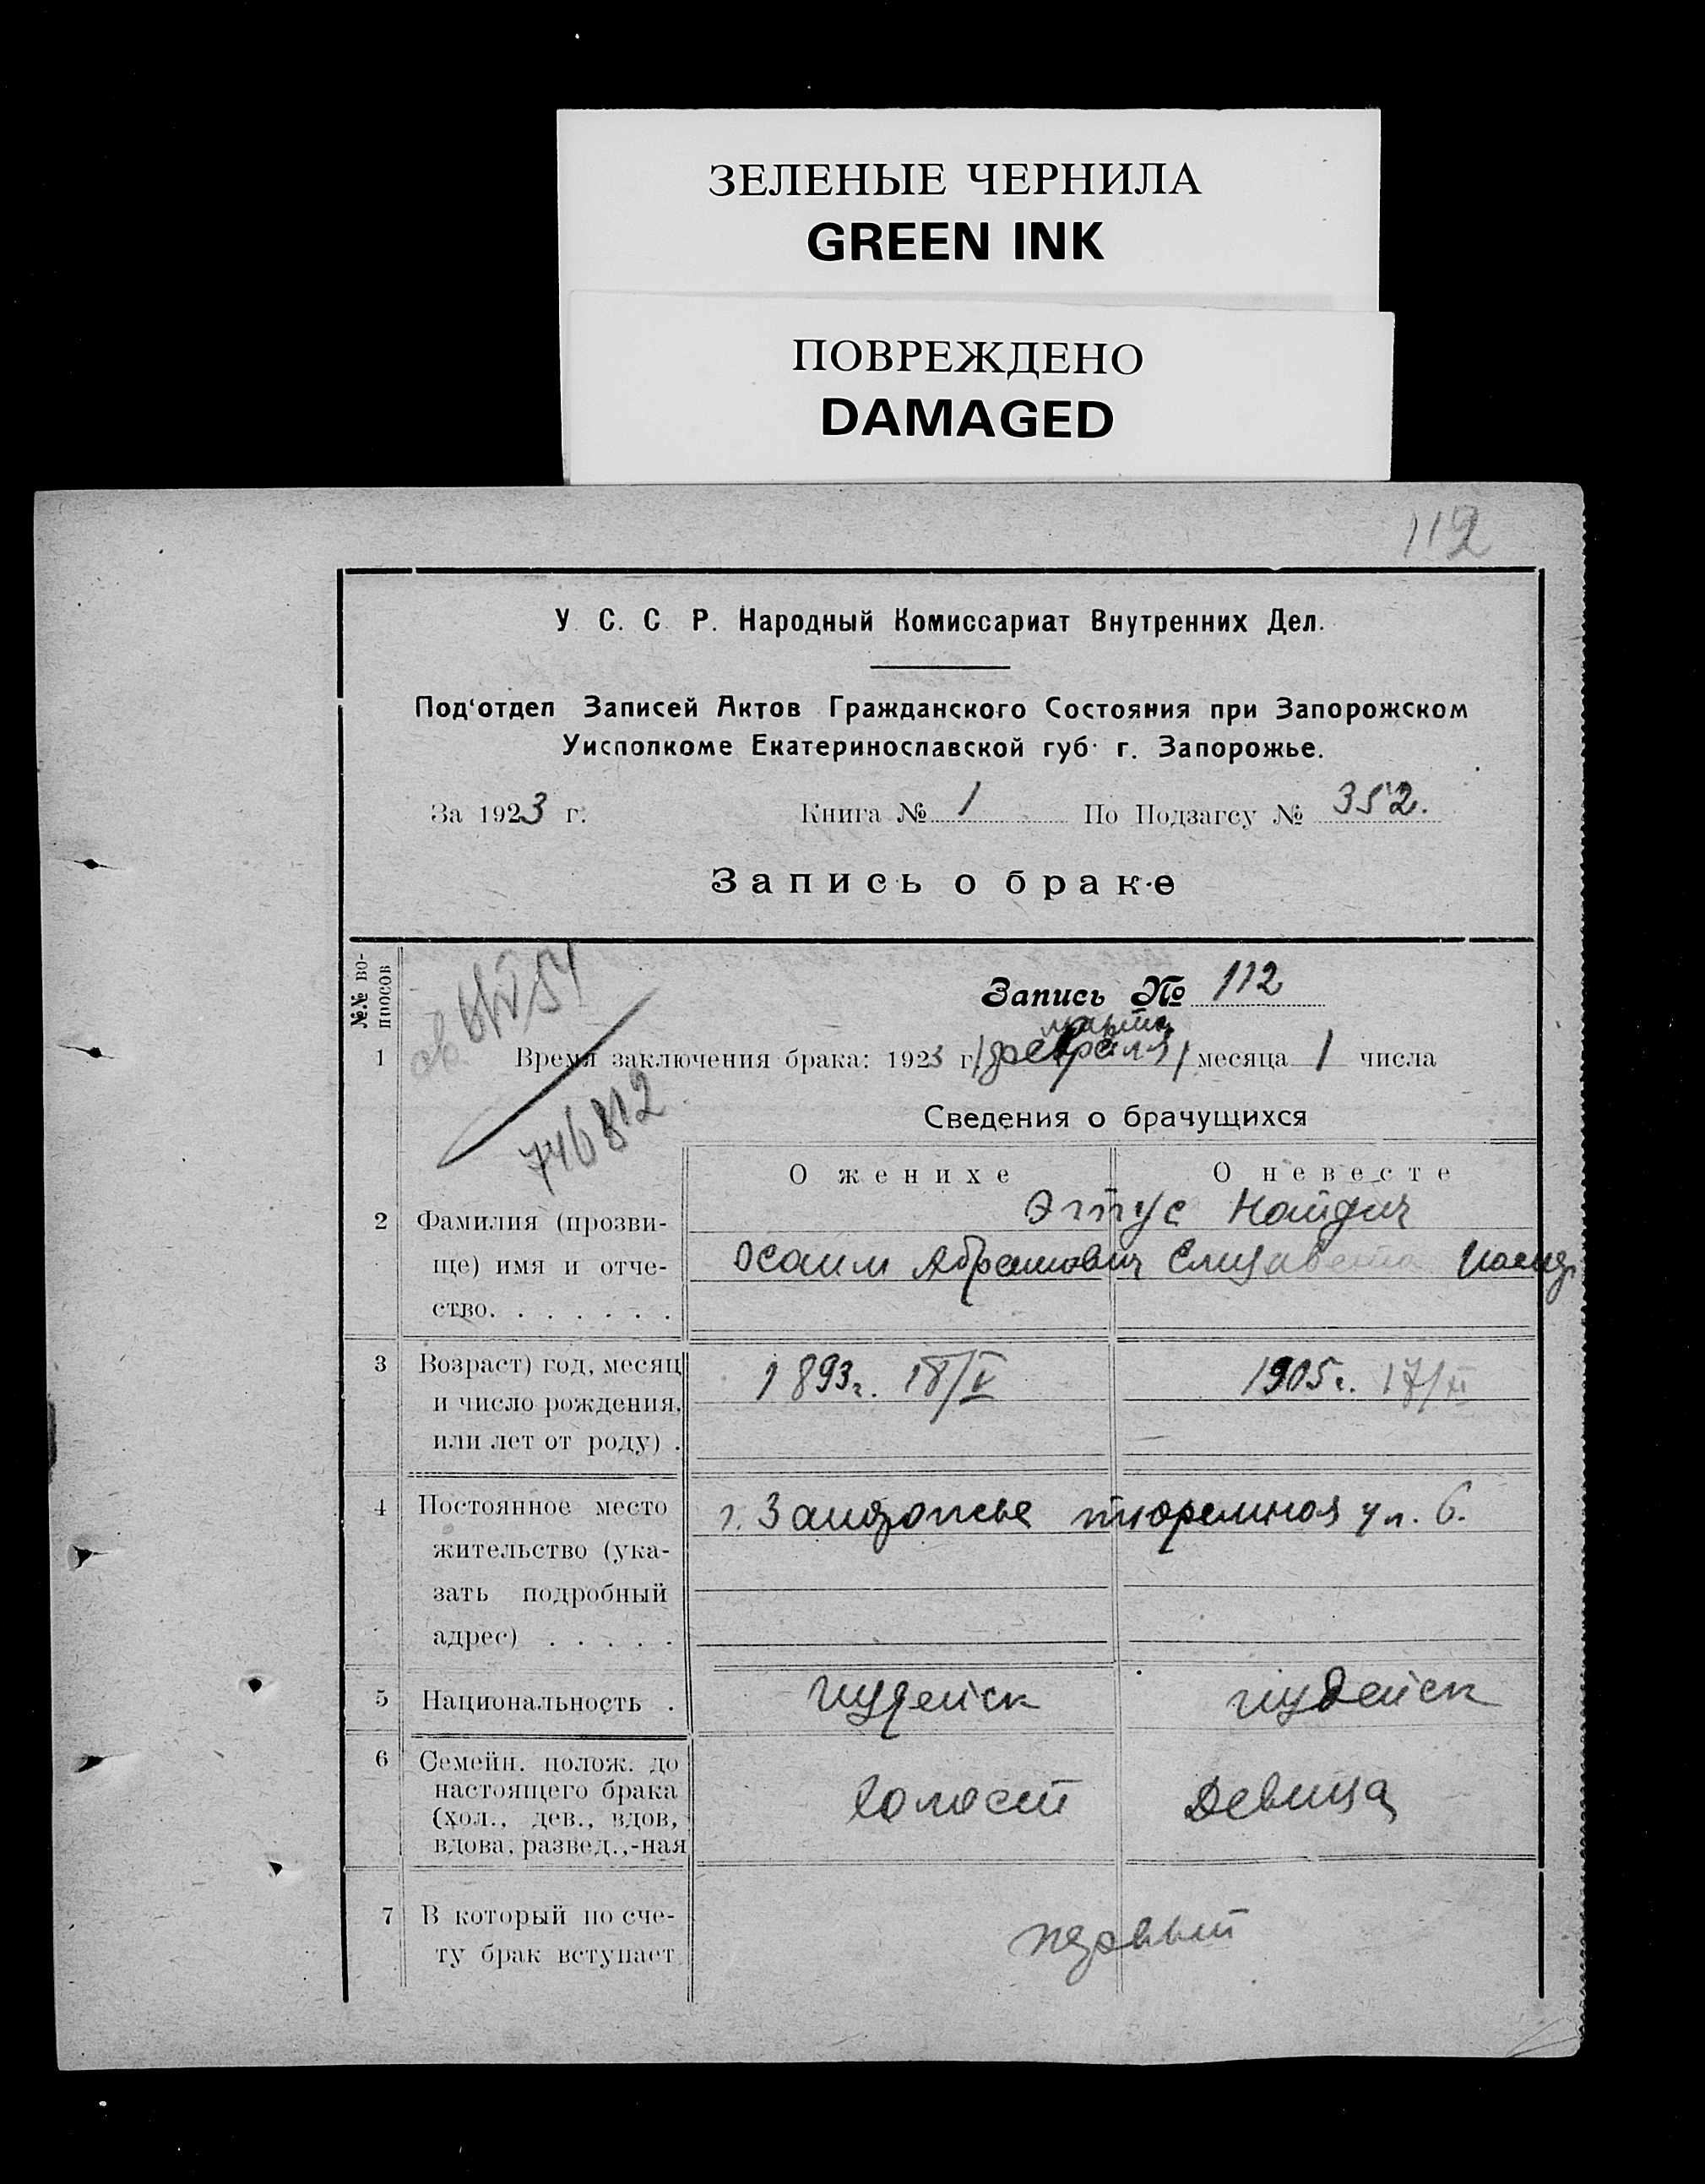 ЗЕЛЕНЫЕ ЧЕРНИЛА
GREEN INK
ПОВРЕЖДЕНО
DAMAGED
112
У. С. С. Р. Народный Комиссариат Внутренних Дел.
Под‘отдел Записей Актов Гражданского Состояния при Запорожском
Уисполкоме Екатеринославской губ. г. Запорожье.
За 1923 г. Книга № 1 По Подзагсу № 352.
Запись о браке
№.№ во-
просов
Запись № 112
марта
1 Время заключения брака: 1923 г. (февраля) месяца 1 числа
746812
Сведения о брачущихся
О женихе О невесте
2 Фамилия (прозви-
ще) имя и отче-
ство. . . . . . .
Абрамович Елизавета
3 Возраст) год, месяц
и число рождения,
или лет от роду) .
1893г. 18/V 1905г. 17/XI
4 Постоянное место
жительство (ука-
зать подробный
адрес) . . . . .
г. Запорожье тюремная ул. 6.
5 Национальность . иудейск иудейск
6 Семейн. полож. до
настоящего брака
(хол., дев., вдов,
вдова, развед.,-ная
Холост Девица
7 В который по сче-
ту брак вступает
первый